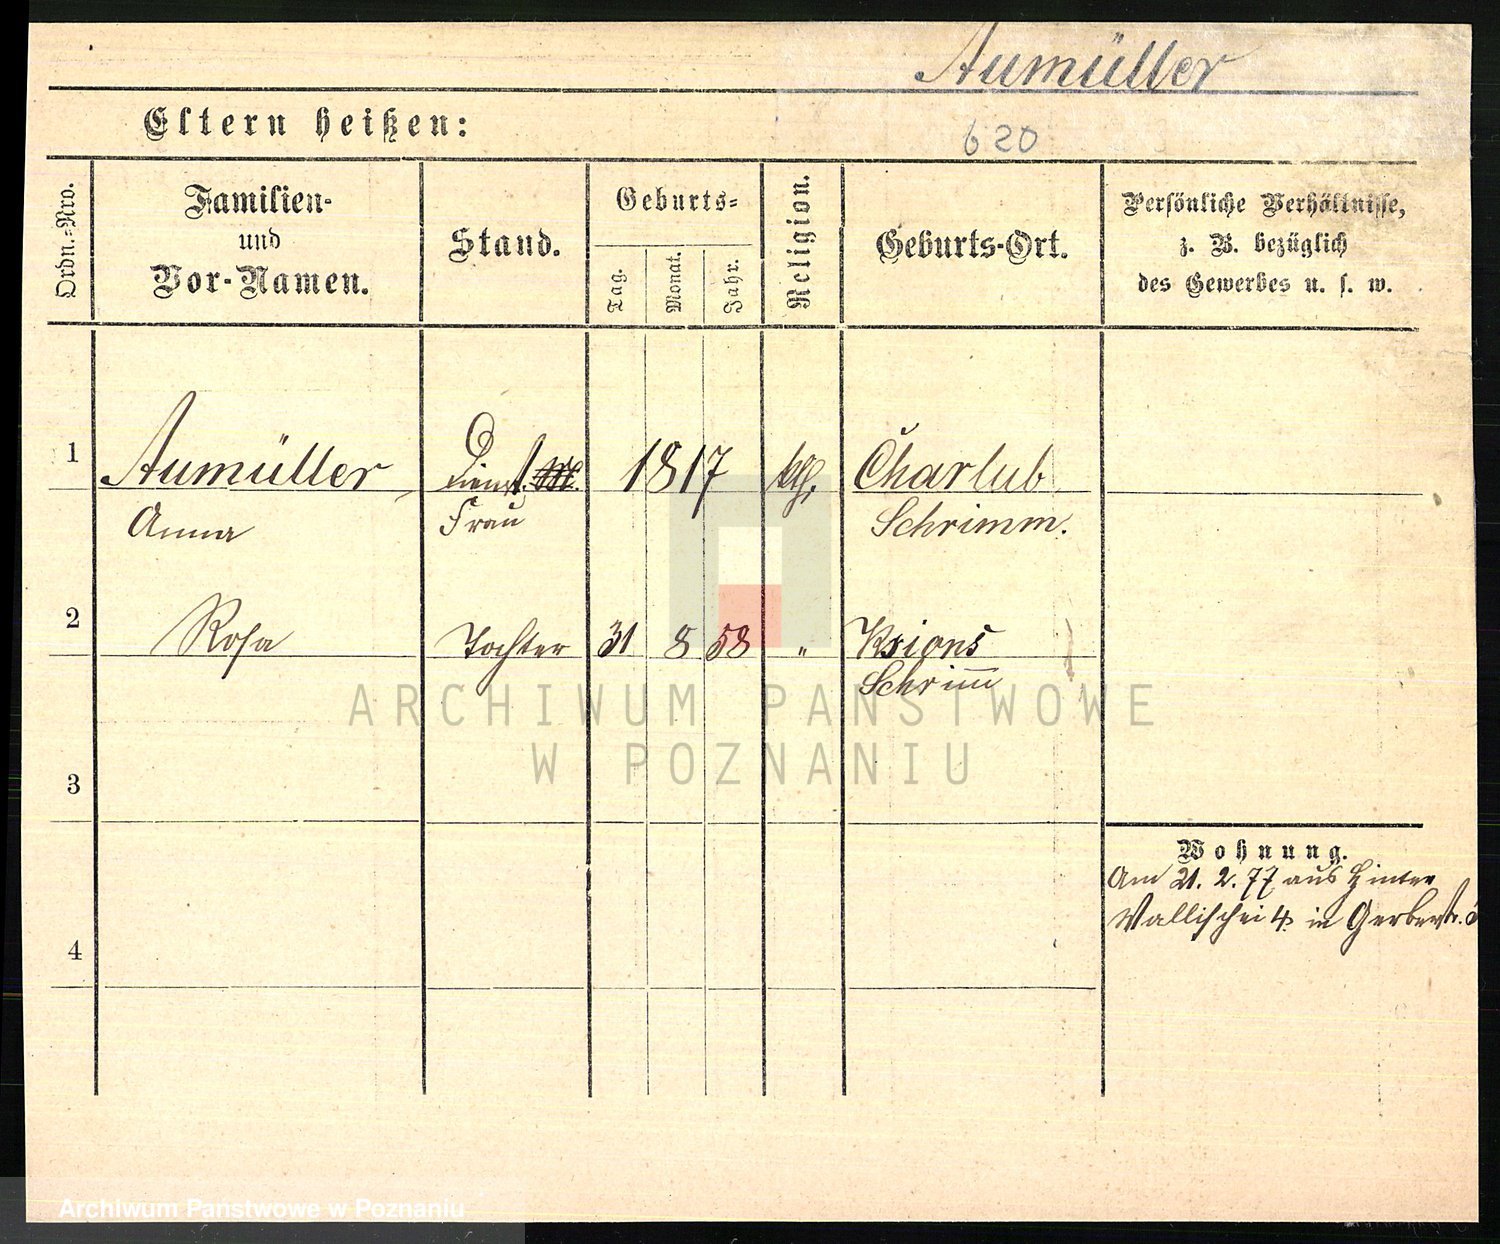 Aumüller
Eltern heißen:
620
Ordn.-Nro.
Familien-
und
Vor-Namen.
Stand.
Geburts-
Tag.
Monat.
Jahr.
Religion.
Geburts-Ort.
Persönliche Verhältnisse,
z. B. bezüglich
des Gewerbes u. s. w.
1
Aumüller
Anna
Dienst.
Frau
1817
kth.
Charlub
Schrimm.
2
Rosa
Tochter
31 8 58
"
Ksions
Schrimm
ARCHIWUM PAŃSTWOWE
W POZNANIU
3
Wohnung.
Am 21. 2. 77 aus Hinter
Wallischei 4. in Gerberstr.
4
Archiwum Państwowe w Poznaniu